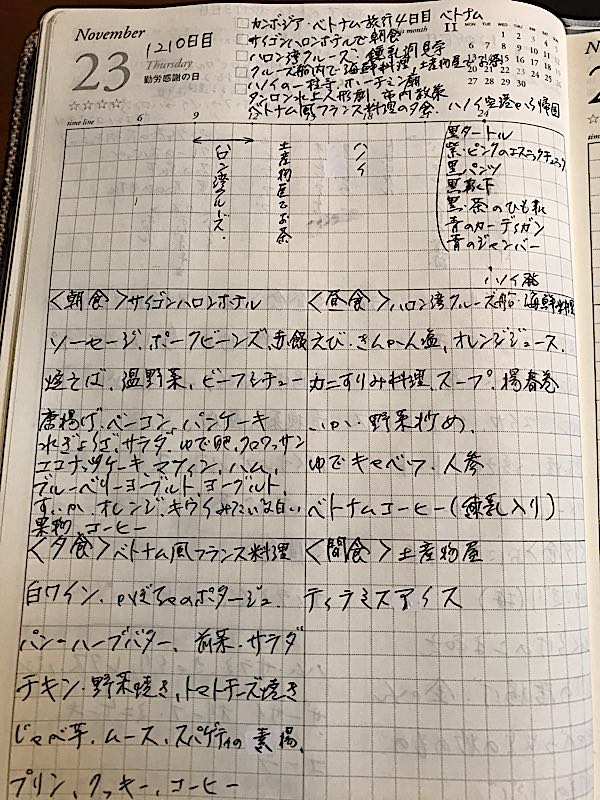 November
23
1210日目
Thursday
勤労感謝の日
カンボジア・ベトナム旅行4日目 ベトナム
サイゴンハロンホテルで朝食
ハロン湾クルーズ、鍾乳洞見学
クルーズ船内で海鮮料理、土産物屋でお茶
ハノイの一柱寺、ホーチミン廟
水上人形劇、市内散策
ベトナム風フランス料理の夕食 ハノイ空港から帰国
month 11
MON TUE WED THU FRI SAT SUN
1 2 3 4 5
6 7 8 9 10 11 12
13 14 15 16 17 18 19
20 21 22 23 24 25 26
27 28 29 30
time line 6 9 24
ハロン湾クルーズ
土産物屋でお茶
ハノイ
黒タートル
紫・ピンクのエスニックチュニック
黒パンツ
黒靴下
黒・茶のひも靴
青のカーディガン
青のジャンパー
ハノイ発
<朝食>サイゴンハロンホテル
ソーセージ、ポークビーンズ、赤飯
焼そば、温野菜、ビーフシチュー
唐揚げ、ベーコン、パンケーキ
水ぎょうざ、サラダ、ゆで卵、クロワッサン
ココナッツケーキ、マフィン、ハム、
ブルーベリーヨーグルト、ヨーグルト、
すいか、オレンジ、キウイみたいな白い
果物、コーヒー
<昼食>ハロン湾クルーズ船・海鮮料理
えび・きんかん塩、オレンジジュース、
カニすりみ料理、スープ、揚春巻
いか・野菜炒め、
ゆでキャベツ、人参
ベトナムコーヒー(練乳入り)
<夕食>ベトナム風フランス料理
白ワイン、かぼちゃのポタージュ
パン・ハーブバター、前菜・サラダ
チキン・野菜焼き、トマトチーズ焼き
じゃが芋、ムース、スパゲティの素揚、
プリン、クッキー、コーヒー
<間食>土産物屋
ティラミスアイス